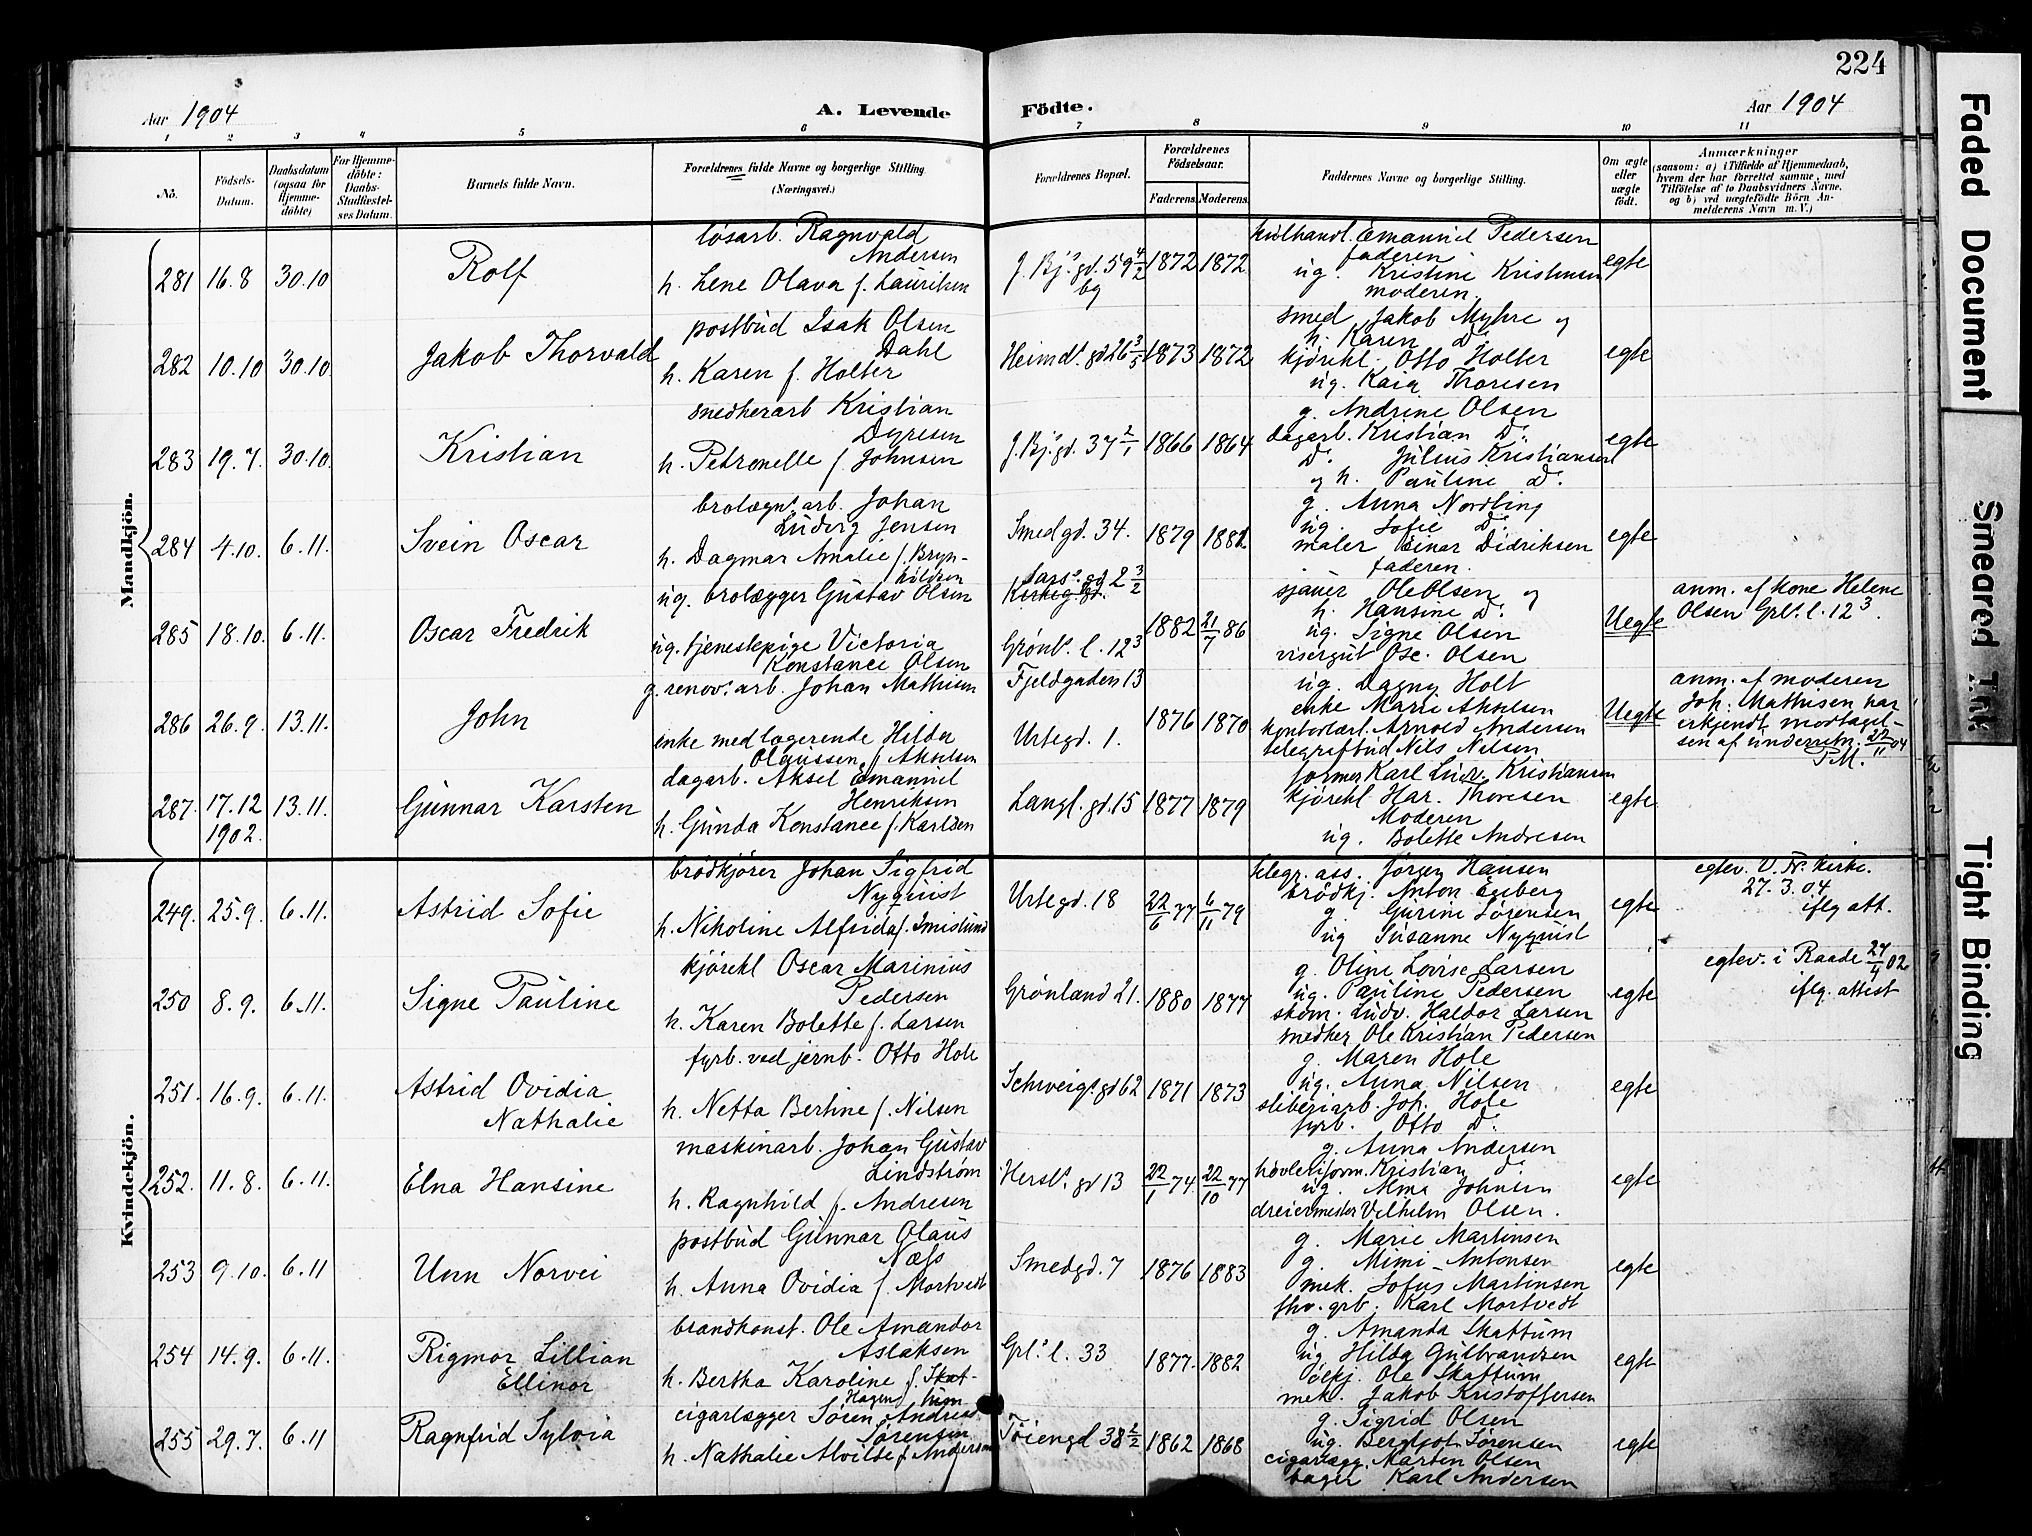 224
Aar 1904
A. Levende
Födte.
Aar 1904
1 2 3 4 5 6 7 8 9 10 11
No.
Födsels-Datum.
Daabsdatum (ogsaa for Hjemme-döbte)
For Hjemme-döbte: Daabs-Stadfæstel-ses Datum.
Barnets fulde Navn.
Forældrenes fulde Navne og borgerlige Stilling (Næringsvei.)
Forældrenes Bopæl.
Forældrenes Födselsaar.
Faderens. Moderens.
Faddernes Navne og borgerlige Stilling.
Om ægte eller uægte födt.
Anmærkninger
(saasom: a) i Tilfælde af Hjemmedaab, hvem der har forrettet samme, med Tilföielse af to Daabsvidners Navne, og b) ved uægtefödte Börn An-melderens Navn m. V.)
Mandkjön.
281 16.8 30.10 Rolf
løsarb. Ragnvald
Andersen
h. Lene Olava f. Lauritsen
J. Bj.s gd. 59 4/2
bg
1872 1872
kulhandl. Emanuel Pedersen
faderen
ug. Kristine Kristensen
moderen
egte
282 10.10 30.10 Jakob Thorvald
postbud Isak Olsen
Dahl
h. Karen f. Holter
Heimd.s gd 26 3/5
1873 1872
smed Jakob Myhre og
h. Karen do
kjørekl. Otto Holter
ug. Kaia Thoresen
egte
283 19.7. 30.10 Kristian
snedkerarb Kristian
Dyresen
h. Petronelle f. Johnsen
J. Bj.s gd. 37 2/1
1866 1864
g. Andrine Olsen
dagarb. Kristian do
do Julius Kristiansen
og h. Pauline do
egte
284 4.10. 6.11. Svein Oscar
brolægn.s arb. Johan
Ludvig Jensen
h. Dagmar Amalie f. Bryn-
hildsen
Smedgd. 34.
1879 1882
g. Anna Nordling
ug. Sofie do
maler Einar Didriksen
faderen.
egte
285 18.10. 6.11. Oscar Fredrik
ug. brolægger Gustav Olsen
ug. tjenestepige Victoria
Konstance Olsen
Lars.s gd 2 3/2
Grønl.s l. 12 3
1882 21/7 86
sjauer Ole Olsen og
h. Hansine do
ug. Signe Olsen
visergut Osc. Olsen
Uegte
anm. af kone Helene
Olsen Grl.s l. 12 3.
286 26.9. 13.11. John
g. renov.s arb. Johan Mathisen
enke med lagerende Hilda
Olaussen f. Akselsen
Fjeldgaden 13
Urtegd. 1.
1876 1870
ug. Dagny Holt
enke Marie Akselsen
kontorlærl. Arnold Andersen
telegrafbud Nils Nilsen
Uegte
anm. af moderen
Joh. Mathisen har
erkjendt modtagel-
sen af underretn. 22/11 04
PM.
287. 17.12 1902. 13.11. Gunnar Karsten
dagarb. Aksel Emanuel
Henriksen
h. Gunda Konstance f. Karlsen
Langl. gd. 15
1877 1879
former Karl Ludv. Kristiansen
kjørekl Har. Thoresen
Moderen
ug. Bolette Andresen
egte
Kvindekjön.
249. 25.9. 6.11. Astrid Sofie
brødkjører Johan Sigfrid
Nyquist
h. Nikoline Alfrida f. Smislund
Urtegd. 18
22/6 77 6/11 79
telegr. ass. Jørgen Hansen
brødkj. Anton Enberg
g. Gurine Sørensen
ug Susanne Nyquist
egte
egtev. V. Fr. kirke.
27.3.04
iflg att.
250 8.9. 6.11. Signe Pauline
kjørekl Oscar Marinius
Pedersen
h. Karen Bolette f. Larsen
Grønland 21.
1880 1877
g. Oline Lovise Larsen
ug. Pauline Pedersen
skom. Ludv. Haldor Larsen
snedker Ole Kristian Pedersen
egte
egtev. i Raade 27/4 02
iflg. attest
251. 16.9. 6.11. Astrid Ovidia
Nathalie
fyrb. ved jernb. Otto Hole
h. Netta Bertine f. Nilsen
Schweig.s gd 62
1871 1873
g. Maren Hole
ug. Anna Nilsen
sliberiarb Joh. Hole
fyrb. Otto do
egte
252. 11.8. 6.11. Elna Hansine
maskinarb. Johan Gustav
Lindstrøm
h. Ragnhild f. Andresen
Hersl.s gd 13
22/1 74. 22/10 77
g. Anna Andersen
høvleriform. Kristian do
ug. Alma Johnsen
dreiermester Vilhelm Olsen.
egte
253 9.10. 6.11 Unn Norvei
postbud Gunnar Olaus
Næss
h. Anna Ovidia f. Mortvedt
Smedgd. 7
1876 1883
g. Marie Martinsen
g. Mimi Antonsen
mek. Sofus Martinsen
fhv. grb. Karl Mortvedt
egte
254 14.9. 6.11. Rigmor Lillian
Ellinor
brandkonst. Ole Amandor
Aslaksen
h. Bertha Karoline f. Skat-
tum
Grl.s l. 33
1877. 1882
g. Amanda Skattum
ug Hilda Gulbrandsen
ølkj. Ole Skattum
mek. Jakob Kristoffersen
egte
255 29.7. 6.11 Ragnfrid Sylvia
Hagen
cigarlægger Søren Andreas
Sørensen
h. Nathalie Alvilde f. Andersen
Tøiengd 38 2/2
1862 1868
g. Sigrid Olsen
ug. Bergljot Sørensen
cigarlægg. Marten Olsen
bager Karl Andersen
egte
Faded Document
Smeared Ink
Tight Binding